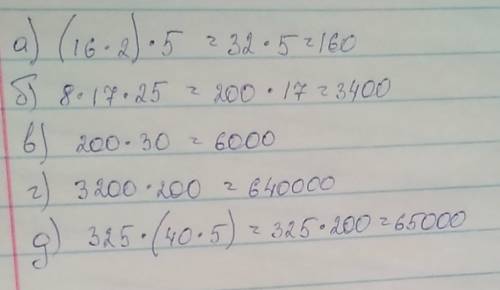 а) (16·2)·5 = 32·5=160
б) 8·17·25 = 200·17=3400
в) 200·30 = 6000
г) 3200·200 = 640000
д) 325·(40·5) = 325·200=65000